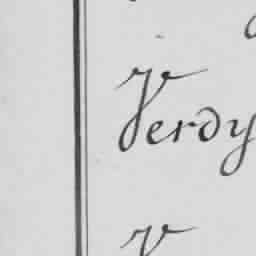 Verdy
V